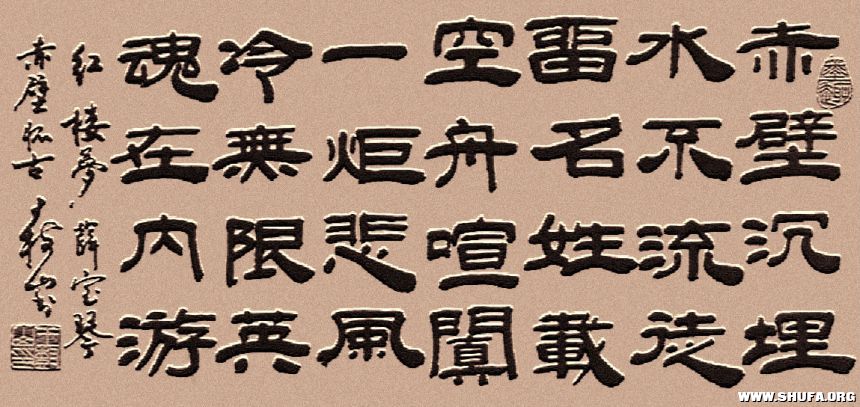 赤壁沉埋
水不流徒
畱名姓載
空舟喧闐
一炬悲風
冷無限英
魂在内游
红楼夢 薛宝琴
赤壁怀古
WWW.SHUFA.ORG